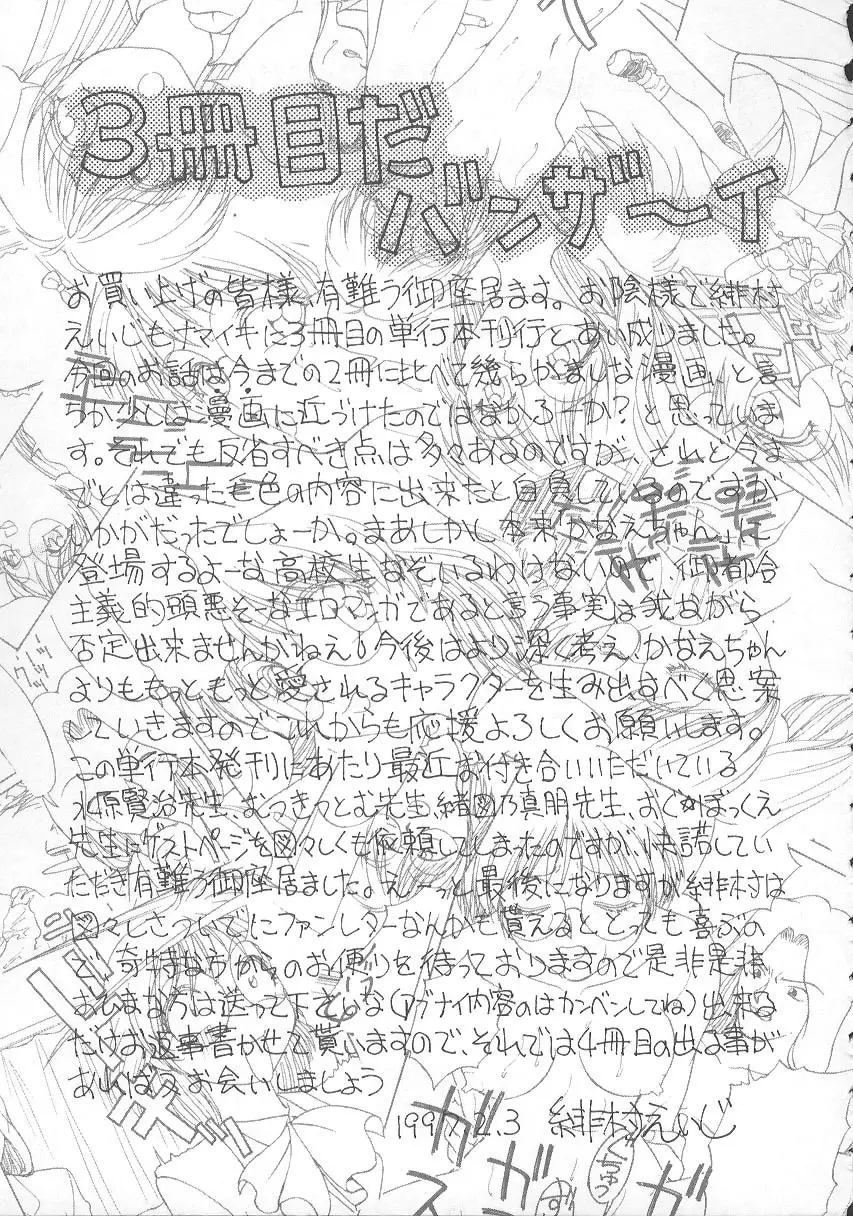 3冊目だ
バンザ〜イ
お買い上げの皆様、有難う御座居ます。お陰様で緋村
えいじもナマイキに3冊目の単行本刊行とあい成りました。
今回のお話は今までの2冊に比べて幾らかましな漫画、と言
うか少しは漫画に近づけたのではなかろーか？と思っていま
す。それでも反省すべき点は多々あるのですが、されど今ま
でとは違った毛色の内容に出来たと自負しているのですが
いかがだったでしょーか。まあしかし本来「かなえちゃん」に
登場するよーな高校生なぞいるわけないので、御都合
主義的頭悪そーなエロマンガであると言う事実は我ながら
否定出来ませんがねえ！今後はより深く考え、かなえちゃん
よりももっともっと愛されるキャラクターを生み出すべく思案
していきますのでこれからも応援よろしくお願いします。
この単行本発刊にあたり最近お付き合いいただいている
水原賢治先生、むつきつとむ先生、緒図乃真明先生、おぐ☆ぼっくえ
先生にゲストページを図々しくも依頼してしまったのですが、快諾してい
ただき有難う御座居ました。え〜っと最後になりますが緋村は
図々しさついでにファンレターなんかも貰えるととっても喜ぶの
で、奇特な方からのお便りを待っておりますので是非是非
おひまならば送って下さいな（アブナイ内容のはカンベンしてね）出来る
だけお返事書かせて貰いますので、それでは4冊目の出る事が
あればまたお会いしましょう
1997.2.3 緋村えいじ
ガガ
くちゅっ